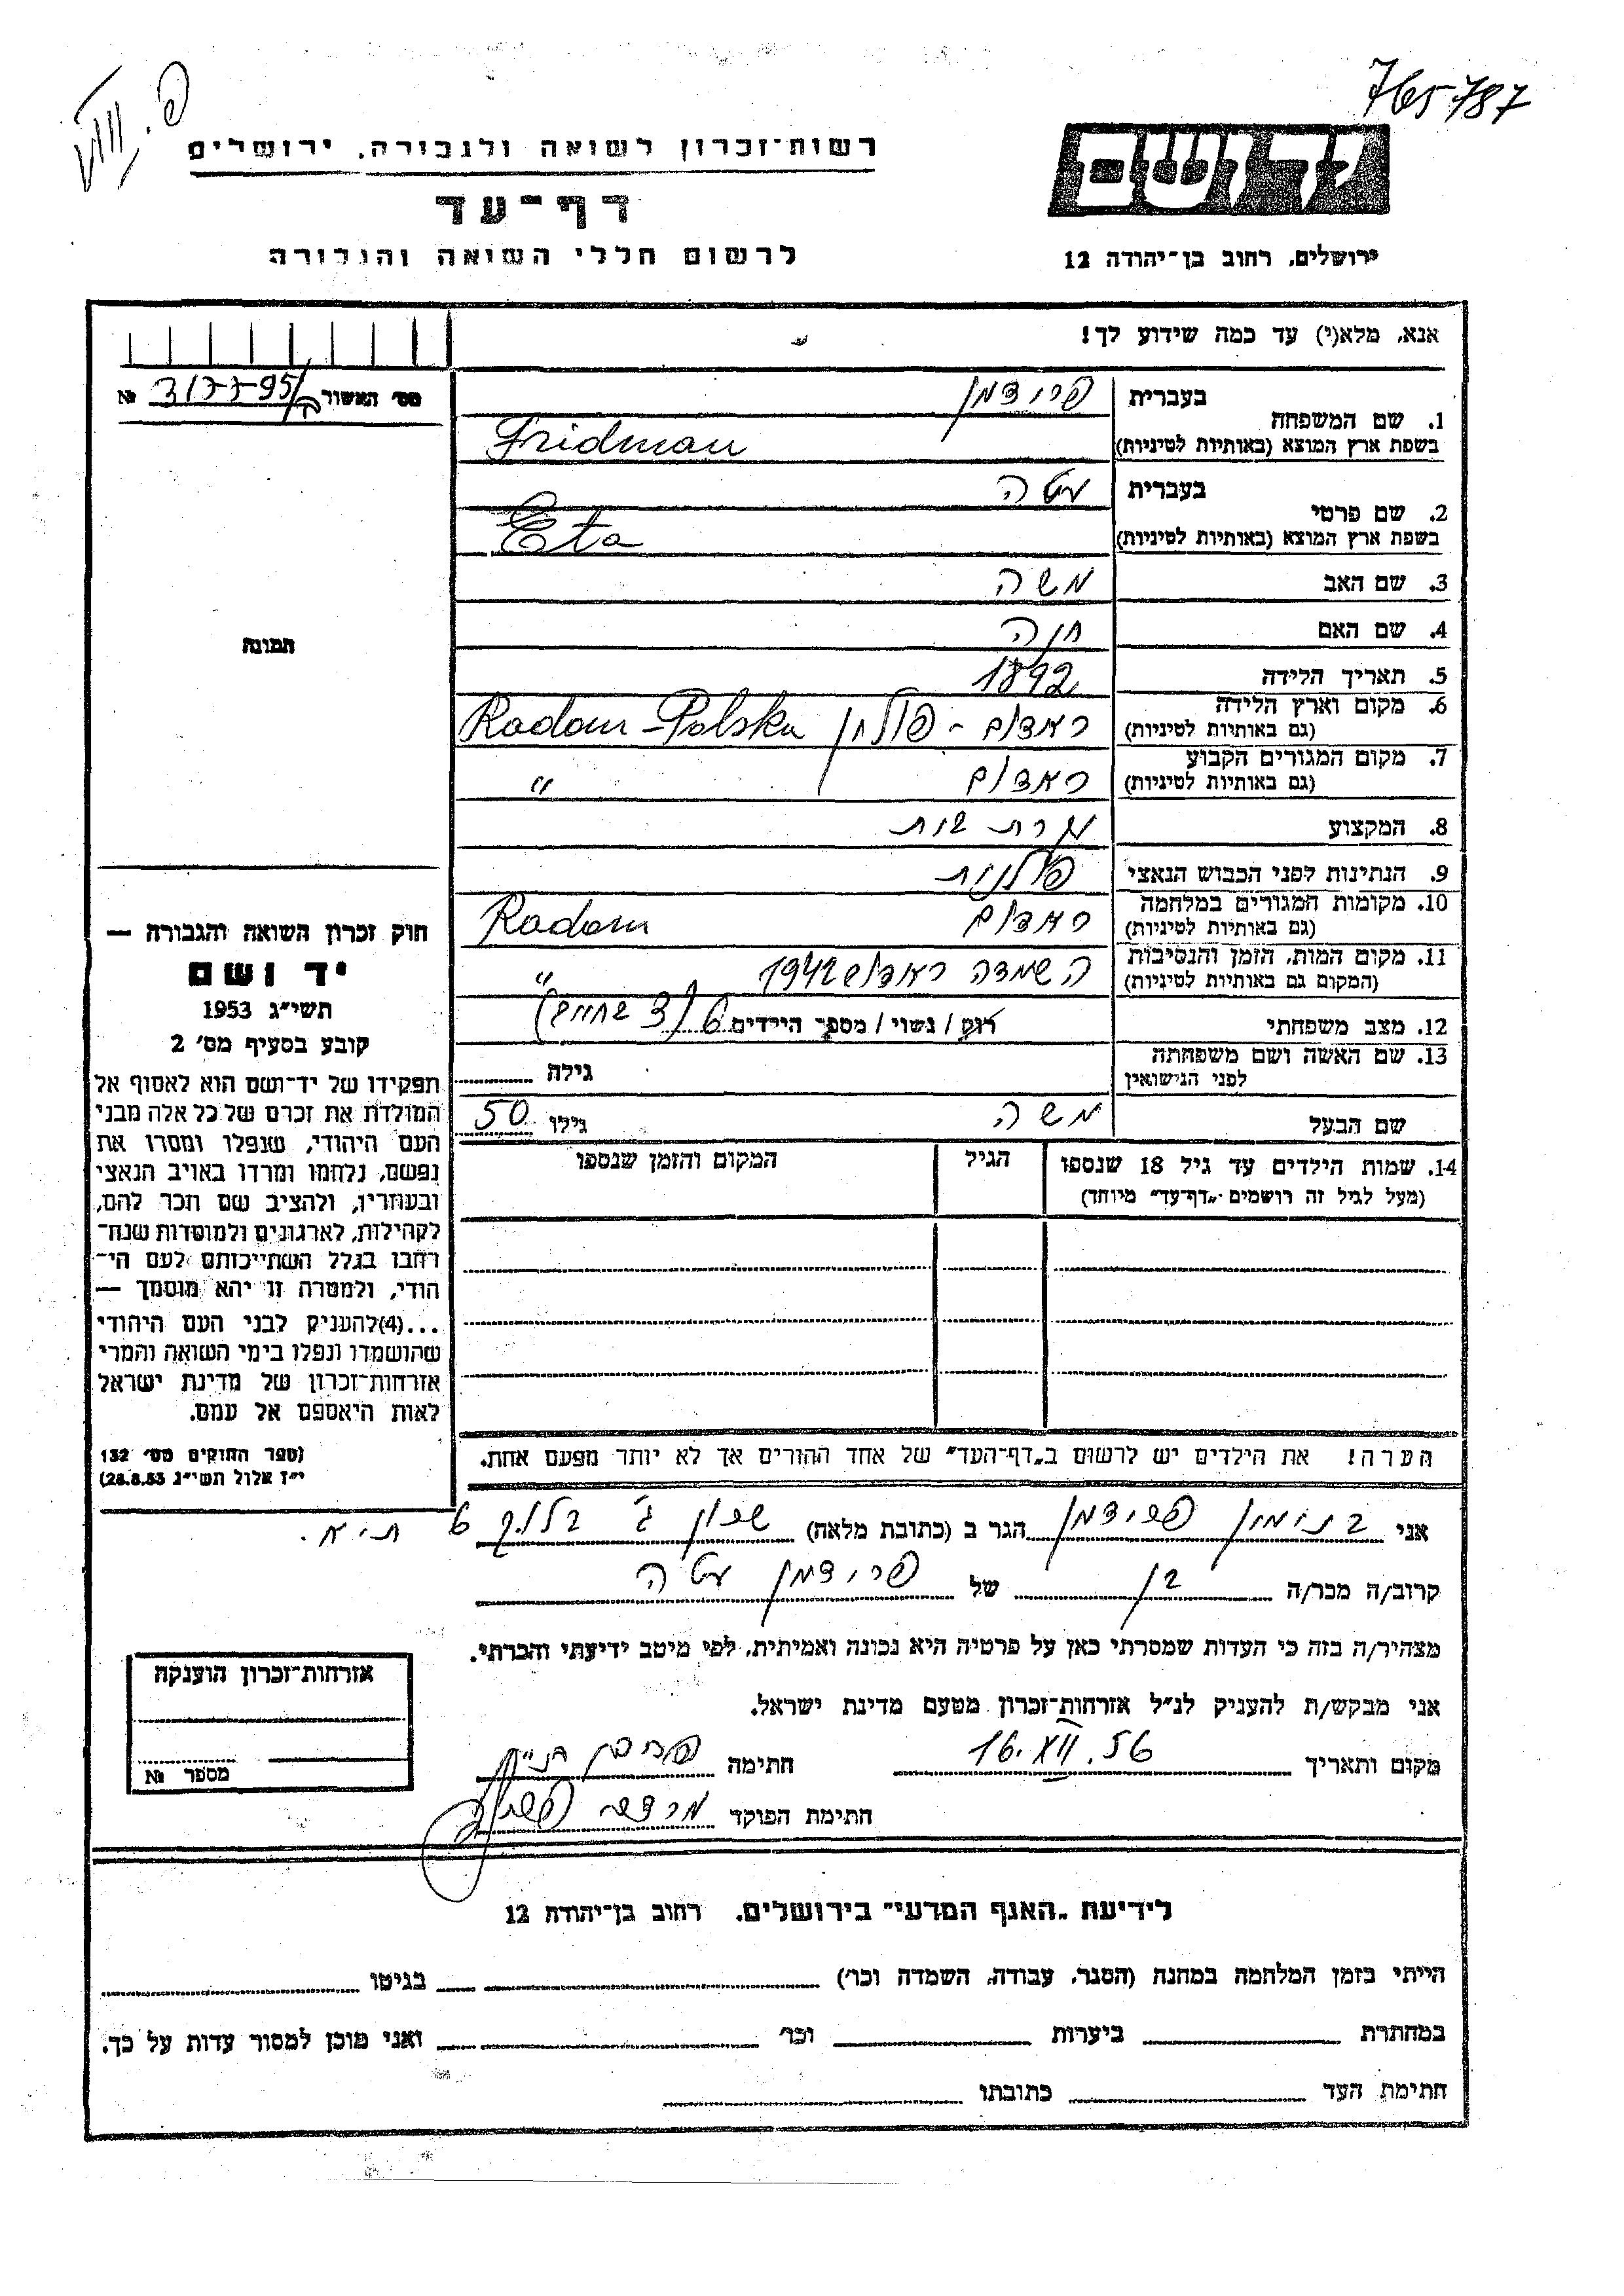 765787
פ. VIII
רשות־זכרון לשואה ולגבורה, ירושלים
דף־עד
לרשום חללי השואה והגבורה
יד ושם
ירושלים, רחוב בן־יהודה 12
אנא, מלא(י) עד כמה שידוע לך!
מס' האשור № 
1. שם המשפחה
בעברית פרידמן
בשפת ארץ המוצא (באותיות לטיניות) Fridman
2. שם פרטי
בעברית עטה
בשפת ארץ המוצא (באותיות לטיניות) Eta
3. שם האב משה
4. שם האם חנה
5. תאריך הלידה 1892
6. מקום וארץ הלידה
(גם באותיות לטיניות) ראדום - פולין Radom - Polska
7. מקום המגורים הקבוע
(גם באותיות לטיניות) ראדום "
8. המקצוע עקרת בית
9. הנתינות לפני הכבוש הנאצי פולנית
10. מקומות המגורים במלחמה
(גם באותיות לטיניות) ראדום Radom
11. מקום המות, הזמן והנסיבות
(המקום גם באותיות לטיניות) השמדה ראדום 1942 "
12. מצב משפחתי רוק / נשוי / מספר הילדים 6
13. שם האשה ושם משפחתה
לפני הנישואין גילה
שם הבעל משה גילו 50
14. שמות הילדים עד גיל 18 שנספו
(מעל לגיל זה רושמים "דף־עד" מיוחד)
הגיל
המקום והזמן שנספו
הערה! את הילדים יש לרשום ב"דף־העד" של אחד ההורים אך לא יותר מפעם אחת.
תמונה
חוק זכרון השואה והגבורה —
יד ושם
תשי"ג 1953
קובע בסעיף מס' 2
תפקידו של יד־ושם הוא לאסוף אל
המולדת את זכרם של כל אלה מבני
העם היהודי, שנפלו ומסרו את
נפשם, נלחמו ומרדו באויב הנאצי
ובעוזריו, ולהציב שם וזכר להם,
לקהילות, לארגונים ולמוסדות שנח־
רבו בגלל השתייכותם לעם הי־
הודי, ולמטרה זו יהא מוסמך —
...(4)להעניק לבני העם היהודי
שהושמדו ונפלו בימי השואה והמרי
אזרחות־זכרון של מדינת ישראל
לאות היאספם אל עמם.
(ספר החוקים מס' 132
י"ז אלול תשי"ג 28.8.53)
אני בנימין פרידמן הגר ב (כתובת מלאה) שכון ג' בלוק 6 ת.א.
קרוב/ה מכר/ה בן של פרידמן עטה
מצהיר/ה בזה כי העדות שמסרתי כאן על פרטיה היא נכונה ואמיתית, לפי מיטב ידיעתי והכרתי.
אני מבקש/ת להעניק לנ"ל אזרחות־זכרון מטעם מדינת ישראל.
מקום ותאריך 16.XII.56 חתימה
חתימת הפוקד
אזרחות־זכרון הוענקה
מספר №
לידיעת "האגף המדעי" בירושלים, רחוב בן־יהודה 12
הייתי בזמן המלחמה במחנה (הסגר, עבודה, השמדה וכו') בגיטו
במחתרת ביערות וכו' ואני מוכן למסור עדות על כך.
חתימת העד כתובתו